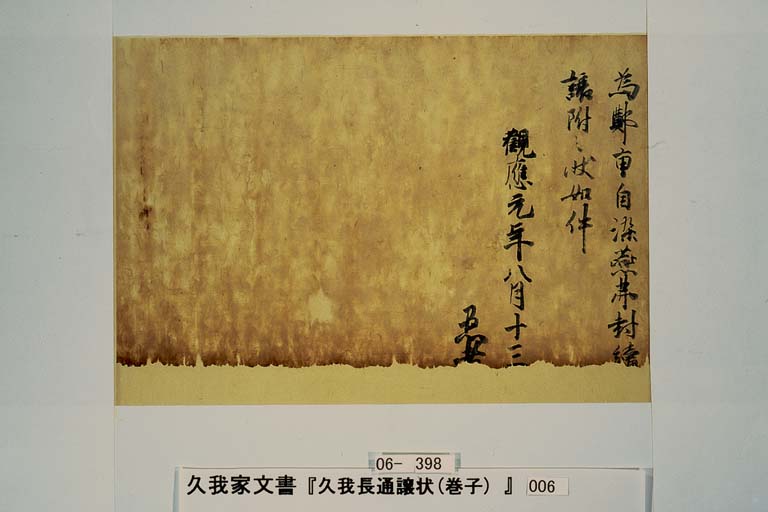 為鄭重自染燕筆封續
譲附之状如件
觀應元年八月十三
06- 398
久我家文書『久我長通譲状(巻子)』 006